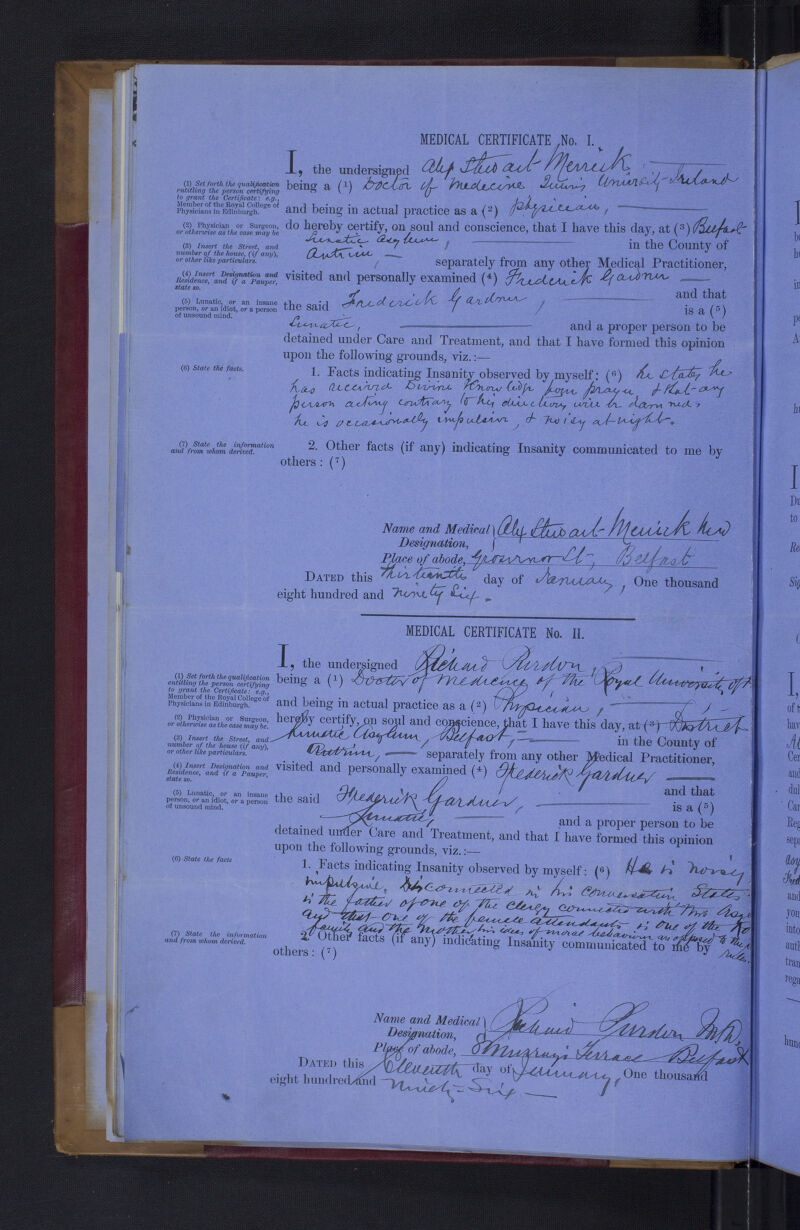 MEDICAL CERTIFICATE No. I.
I, the undersigned Alex Stewart Merrick
(1) Set forth the qualification entitling the person certifying to grant the Certificate: e.g., Member of the Royal College of Physicians in Edinburgh.
being a (1) Doctor of Medecine Queen's University Ireland
and being in actual practice as a (2) physician,
(2) Physician or Surgeon, or otherwise as the case may be
do hereby certify, on soul and conscience, that I have this day, at (3) Belfast
(3) Insert the Street, and number of the house, (if any), or other like particulars.
Lunatic Asylum, in the County of
Antrim, separately from any other Medical Practitioner,
(4) Insert Designation and Residence, and if a Pauper, state so.
visited and personally examined (4) Frederick Gardner
and that
(5) Lunatic, or an insane person, or an idiot, or a person of unsound mind.
the said Frederick Gardner, is a (5)
Lunatic, and a proper person to be
detained under Care and Treatment, and that I have formed this opinion
upon the following grounds, viz.:—
(6) State the facts.
1. Facts indicating Insanity observed by myself: (6) he states he
has received Divine Knowledge from prayer & that any
person acting contrary to his directions will be damned,
he is occasionally impulsive, & noisy at night.
(7) State the information and from whom derived.
2. Other facts (if any) indicating Insanity communicated to me by
others: (7)
Name and Medical Designation, Alex Stewart Merrick MD
Place of abode, Grosvenor St, Belfast
DATED this thirteenth day of January, One thousand
eight hundred and ninety six.
MEDICAL CERTIFICATE No. II.
I, the undersigned Richard Purdon,
(1) Set forth the qualification entitling the person certifying to grant the Certificate: e.g., Member of the Royal College of Physicians in Edinburgh.
being a (1) Doctor of Medicine of the Royal University of
and being in actual practice as a (2) Physician,
(2) Physician or Surgeon, or otherwise as the case may be.
hereby certify, on soul and conscience, that I have this day, at (3) District
(3) Insert the Street, and number of the house (if any), or other like particulars.
Lunatic Asylum, Belfast, in the County of
Antrim, separately from any other Medical Practitioner,
(4) Insert Designation and Residence, and if a Pauper, state so.
visited and personally examined (4) Frederick Gardner
and that
(5) Lunatic, or an insane person, or an idiot, or a person of unsound mind.
the said Frederick Gardner, is a (5)
Lunatic, and a proper person to be
detained under Care and Treatment, and that I have formed this opinion
upon the following grounds, viz.:—
(6) State the facts
1. Facts indicating Insanity observed by myself: (6) He is noisy
impulsive, disconnected in his conversation. States
is the father of one of the clergy connected with this
and that one of the female attendants is one of the
family and the mother, his ideas of moral behaviour as opposed to the
rules.
(7) State the information and from whom derived.
2. Other facts (if any) indicating Insanity communicated to me by
others: (7)
Name and Medical Designation, Richard Purdon
Place of abode, Murray's Terrace Belfast
DATED this Eleventh day of January, One thousand
eight hundred and Ninety-Six